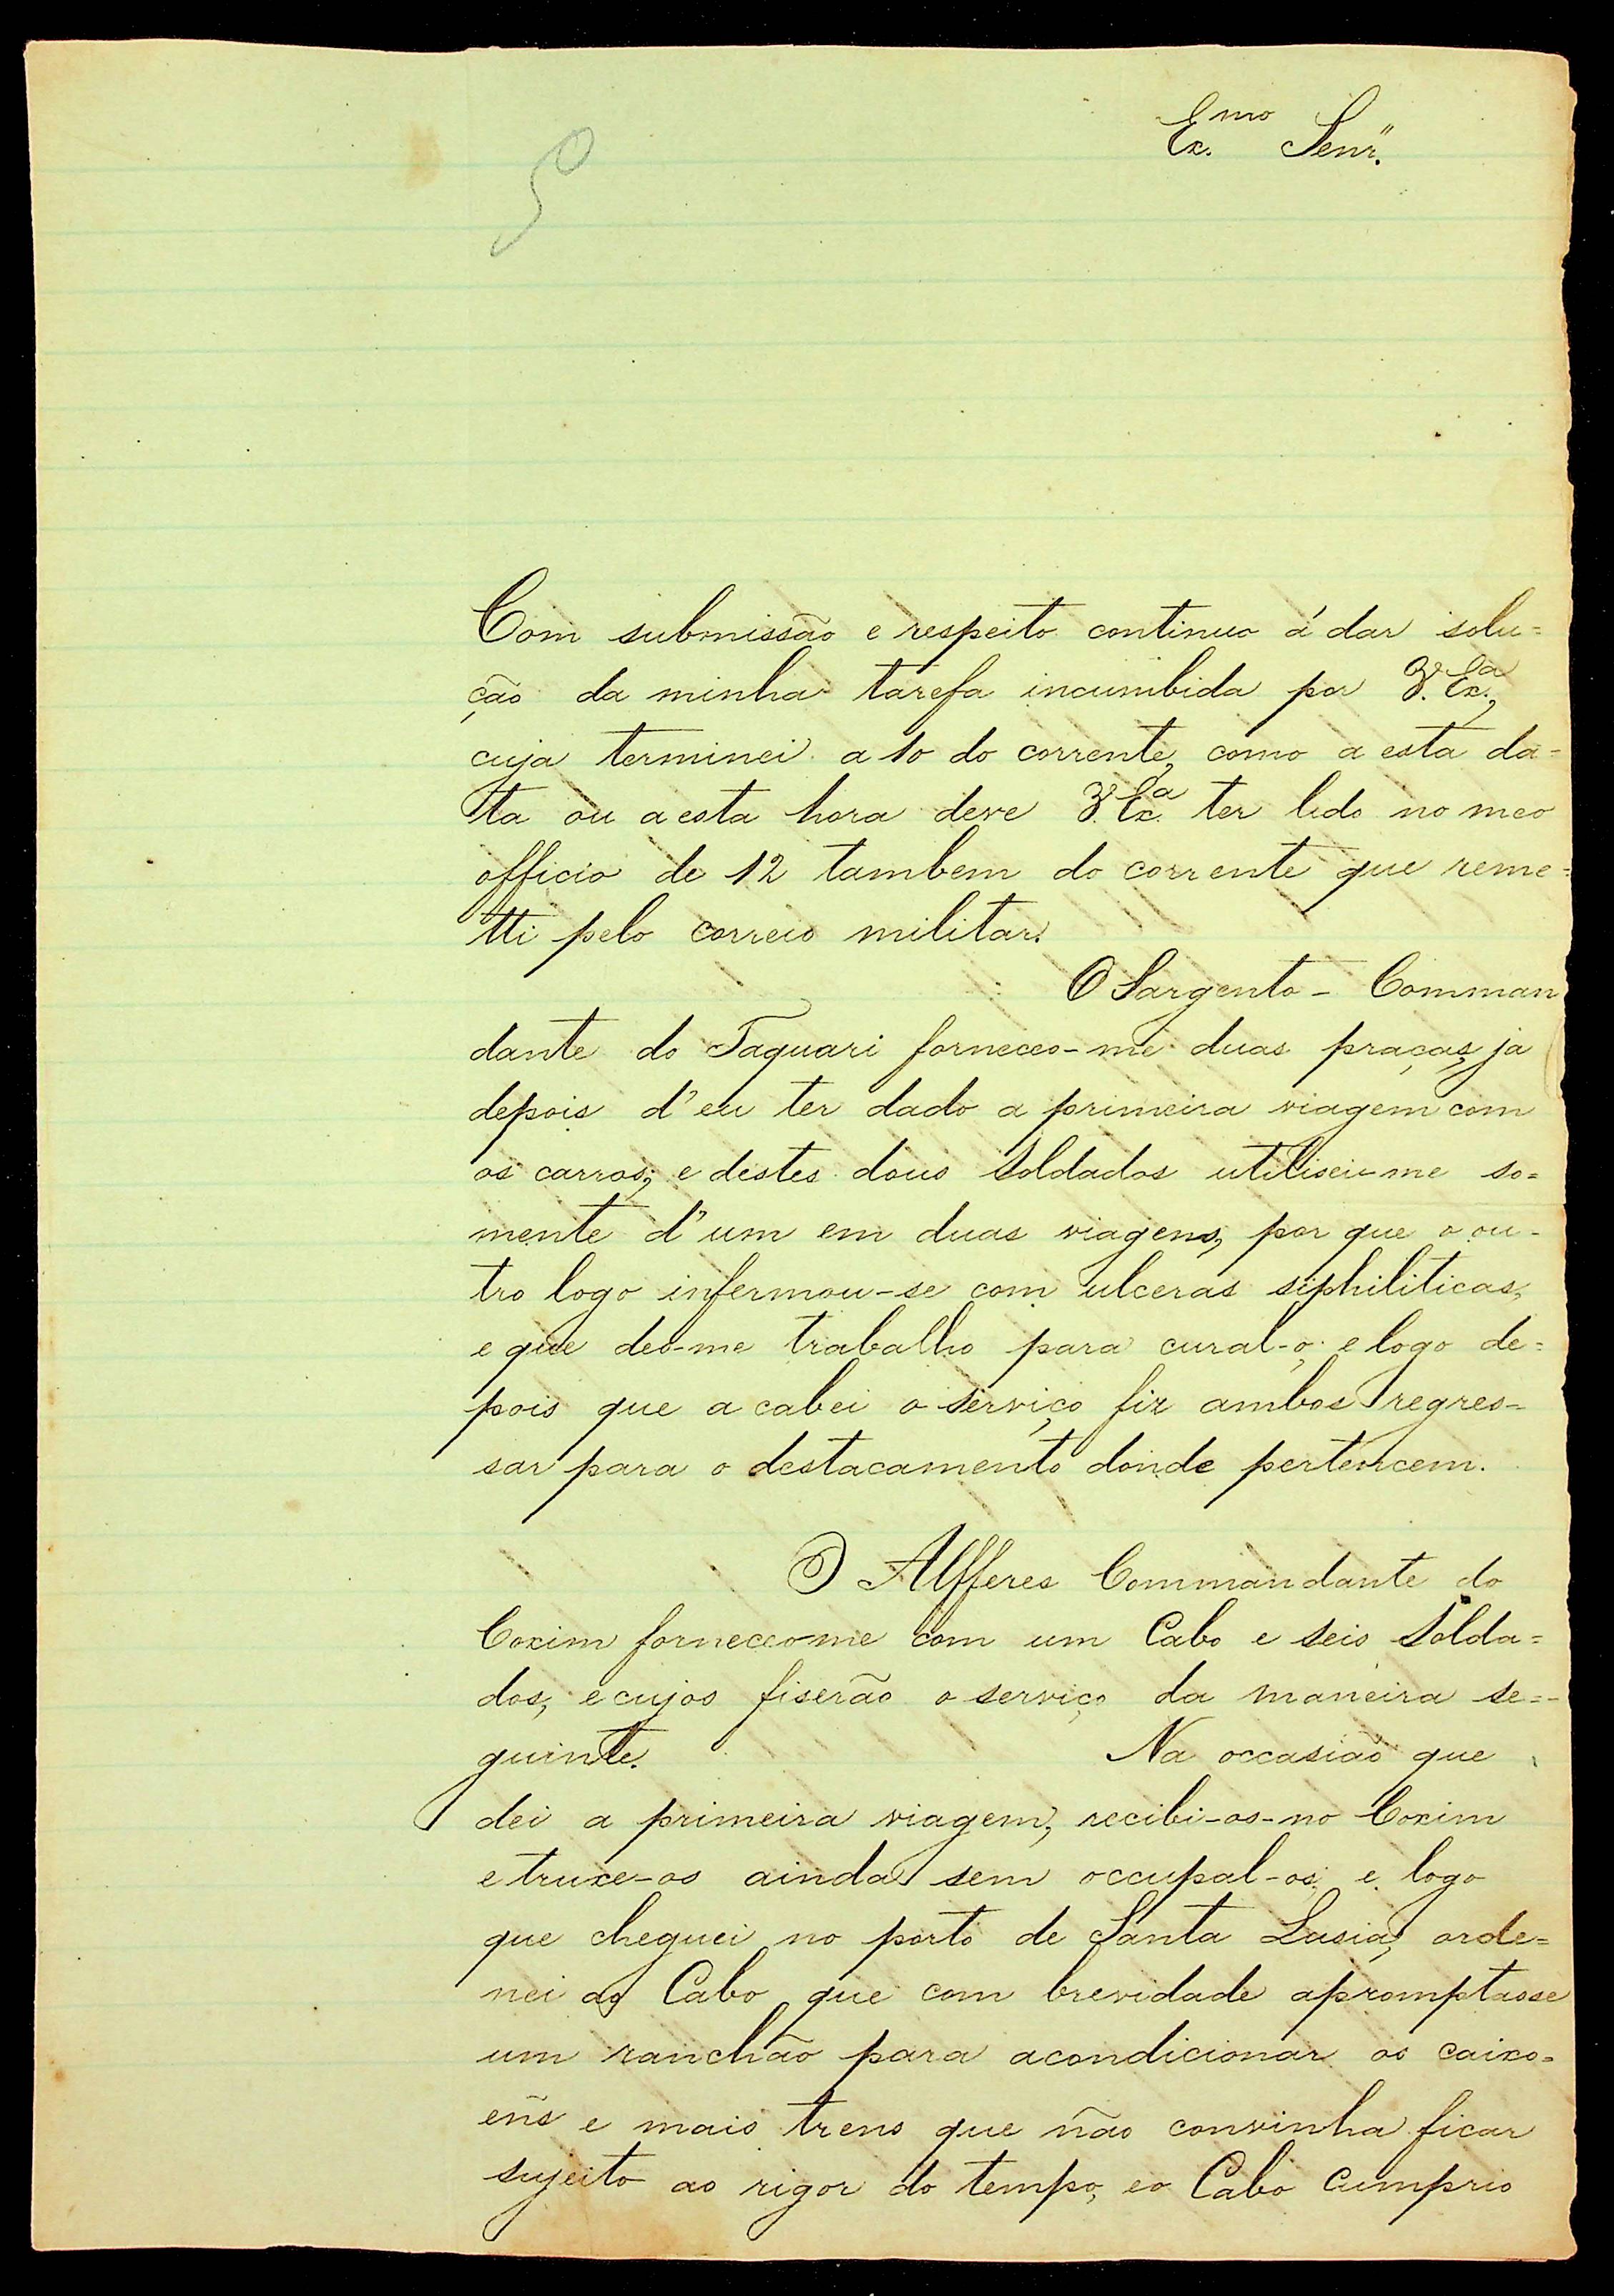 Ex.mo Senr.
Com submissão e respeito continuo á dar solu=
ção da minha tarefa incumbida por V. Ex.a,
cuja terminei a 10 do corrente, como a esta da-
ta ou a esta hora deve V. Ex.a ter lido no meo
officio de 12 tambem do corrente que reme=
tti pelo correio militar.
O Sargento - Comman
dante do Taquari forneceo-me duas praças, ja
depois d'eu ter dado a primeira viagem com
os carros; e destes dous soldados utilisei-me so=
mente d'um em duas viagens, por que o ou-
tro logo infermou-se com ulceras siphiliticas,
e que deo-me trabalho para cural-o; e logo de=
pois que acabei o serviço fiz ambos regres-
sar para o destacamento donde pertencem.
O Alfferes Commandante do
Coxim forneceo-me com um Cabo e seis Solda=
dos, e cujos fiserão o serviço da maneira se=
guinte. Na occasião que
dei a primeira viagem, recibi-os-no Coxim
e truxe-os ainda sem occupal-os; e logo
que cheguei no porto de Santa Lusia, orde=
nei ao Cabo que com brevidade apromptasse
um ranchão para acondicionar os caixo=
ens e mais trens que não convinha ficar
sujeito ao rigor do tempo, eo Cabo cumprio